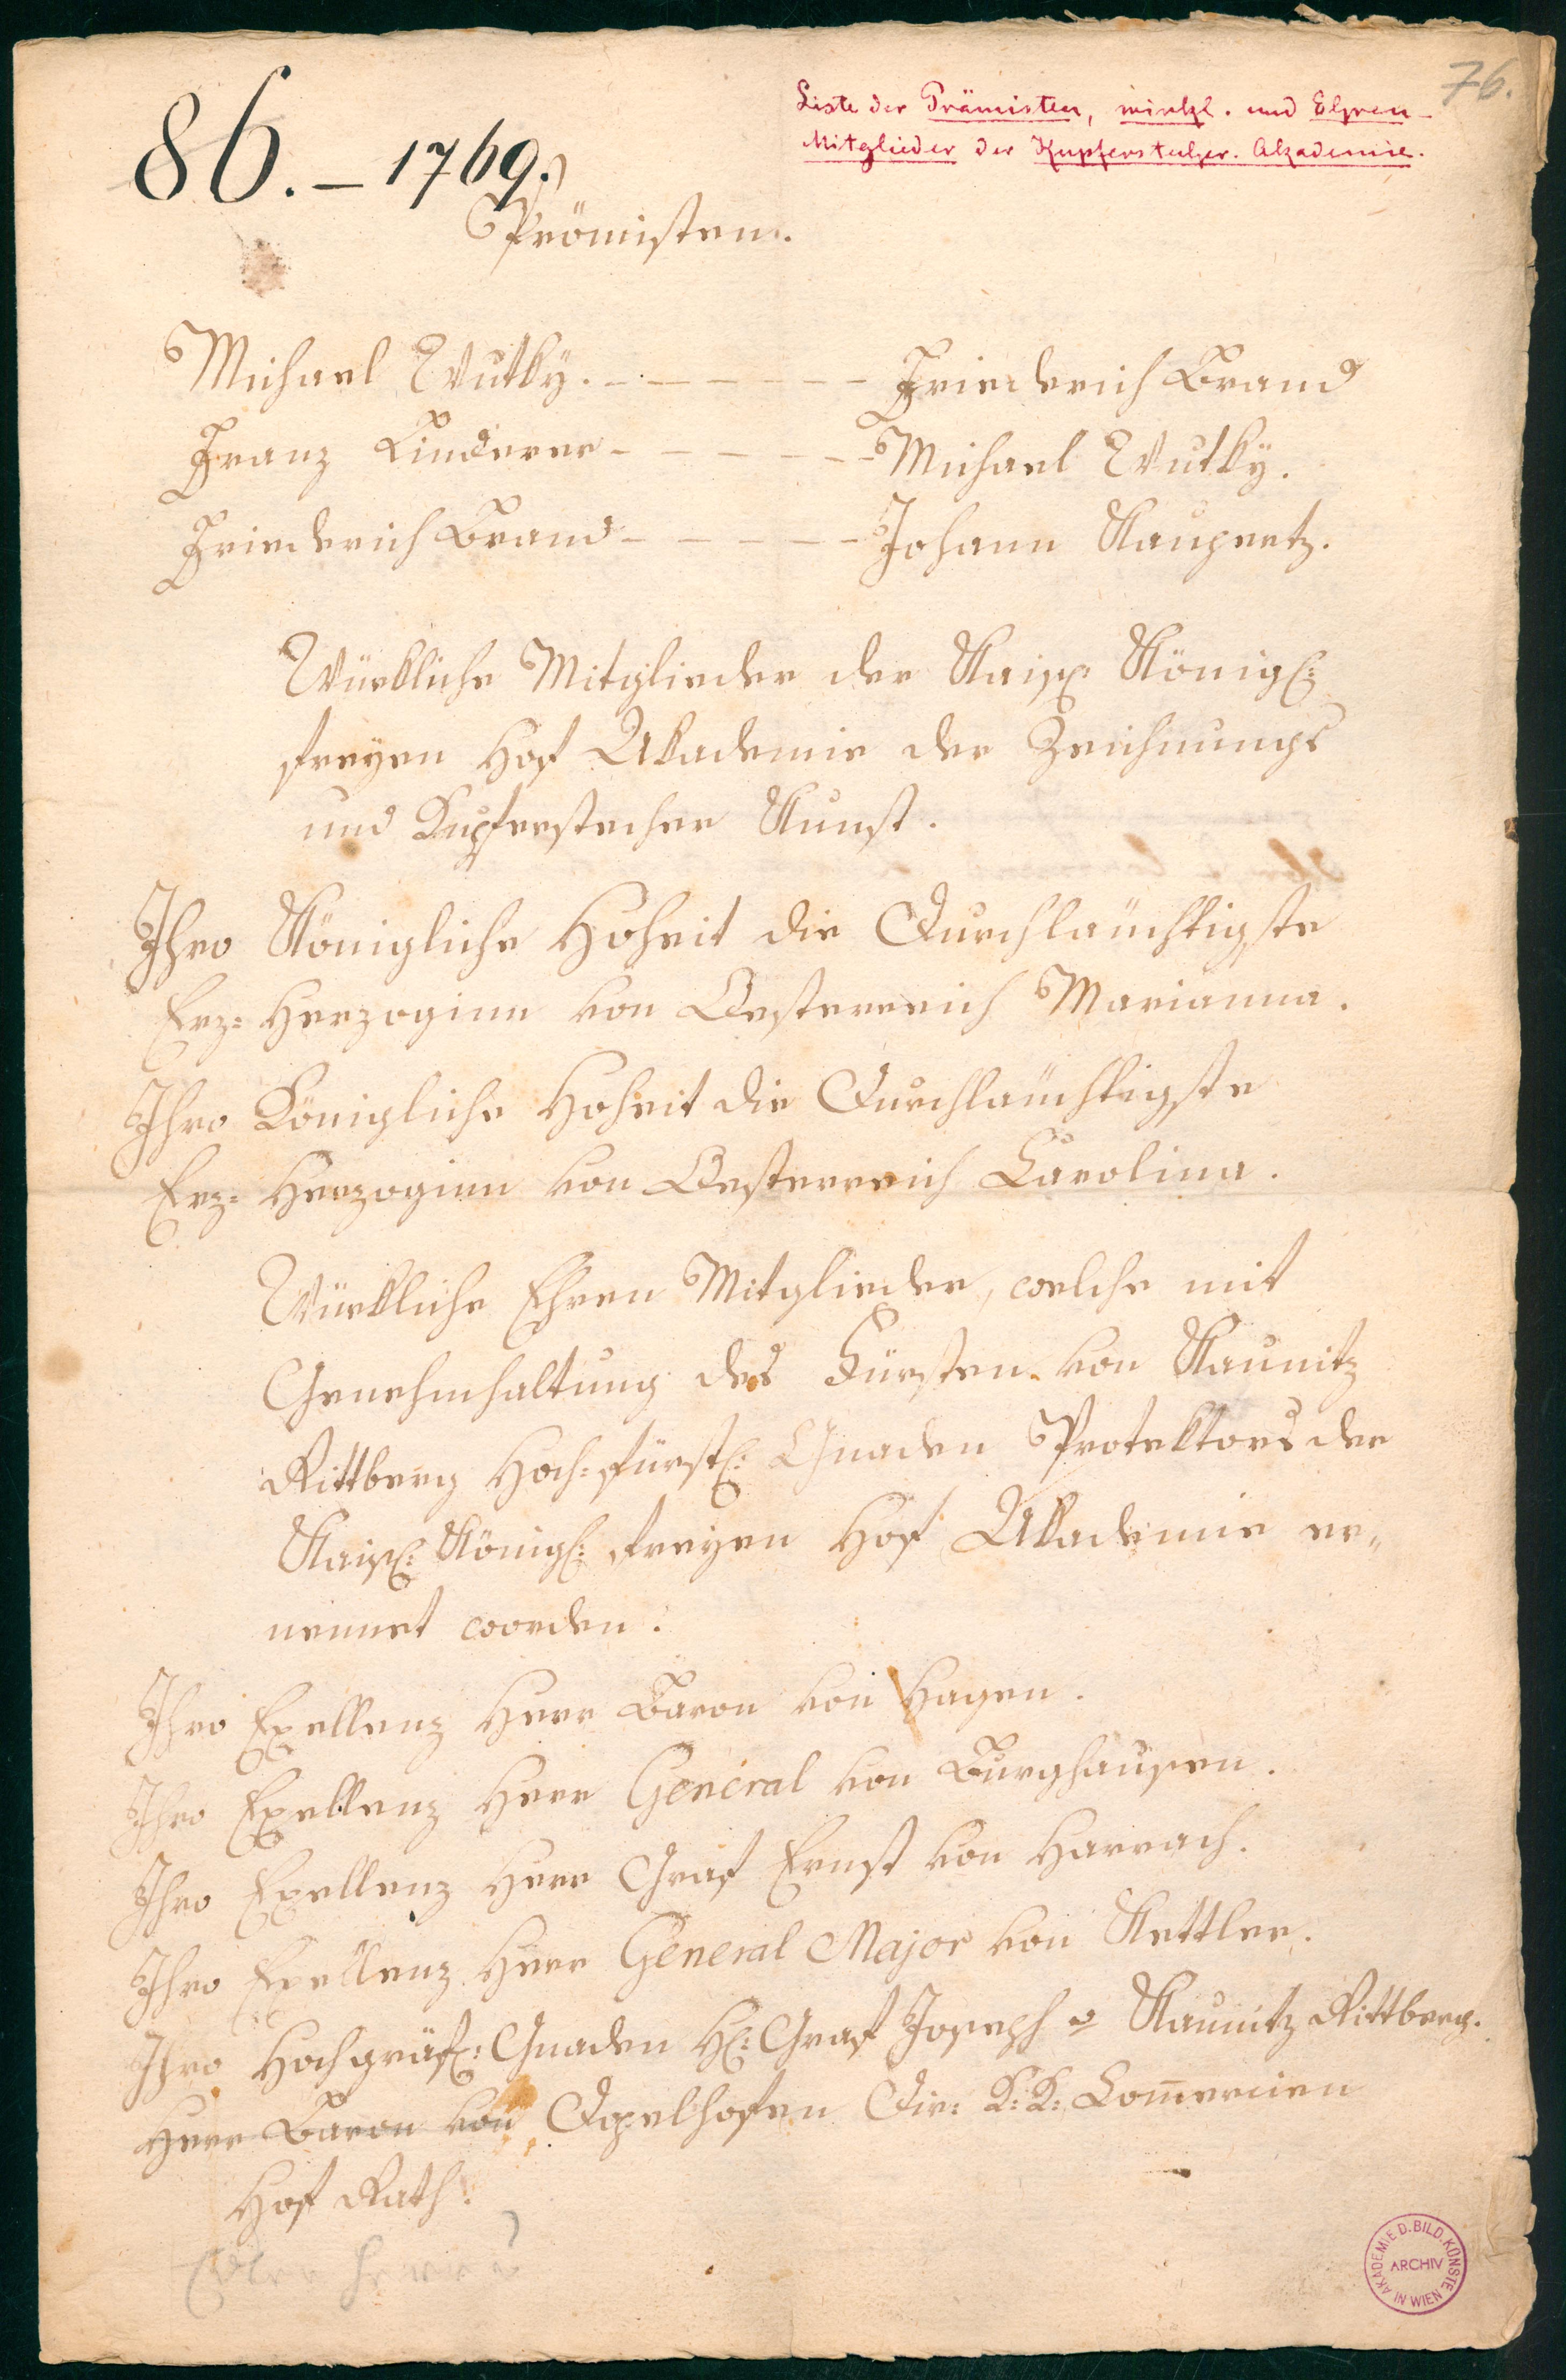 76.
Liste der Prämisten, wirkl. und Ehren-
Mitglieder der Kupferstecher. Akademie.
86. – 1769.
Prömisten.
Michael Wutky. – – – – – – Friederich Brand
Franz Linderer – – – – – – Michael Wutky.
Friederich Brand – – – – – Johann Kaupertz.
Würkliche Mitglieder der Kaisl: Königl:
freyen Hof Akademie der Zeichnungs
und Kupferstecher Kunst.
Ihro Königliche Hoheit die Durchläuchtigste
Erz= Herzoginn von Oesterreich Marianna.
Ihro Königliche Hoheit die Durchläuchtigste
Erz= Herzoginn von Oesterreich Carolina.
Würkliche Ehren Mitglieder, welche mit
Genehmhaltung des Fürsten von Kaunitz
Rittberg Hoch=fürstl: Gnaden Protektors der
Kaisl: Königl: freyen Hof Akademie er„
nennet worden.
Ihro Exellenz Herr Baron von Hagen.
Ihro Exellenz Herr General von Burghausen.
Ihro Exellenz Herr Graf Ernst von Harrach.
Ihro Exellenz Herr General Major von Kettler.
Ihro Hochgräfl: Gnaden H: Graf Joseph v Kaunitz Rittberg.
Herr Baron von Dopelhofen Dir: K:K: Com̄ercien
Hof Rath.
AKADEMIE D. BILD. KÜNSTE IN WIEN
ARCHIV